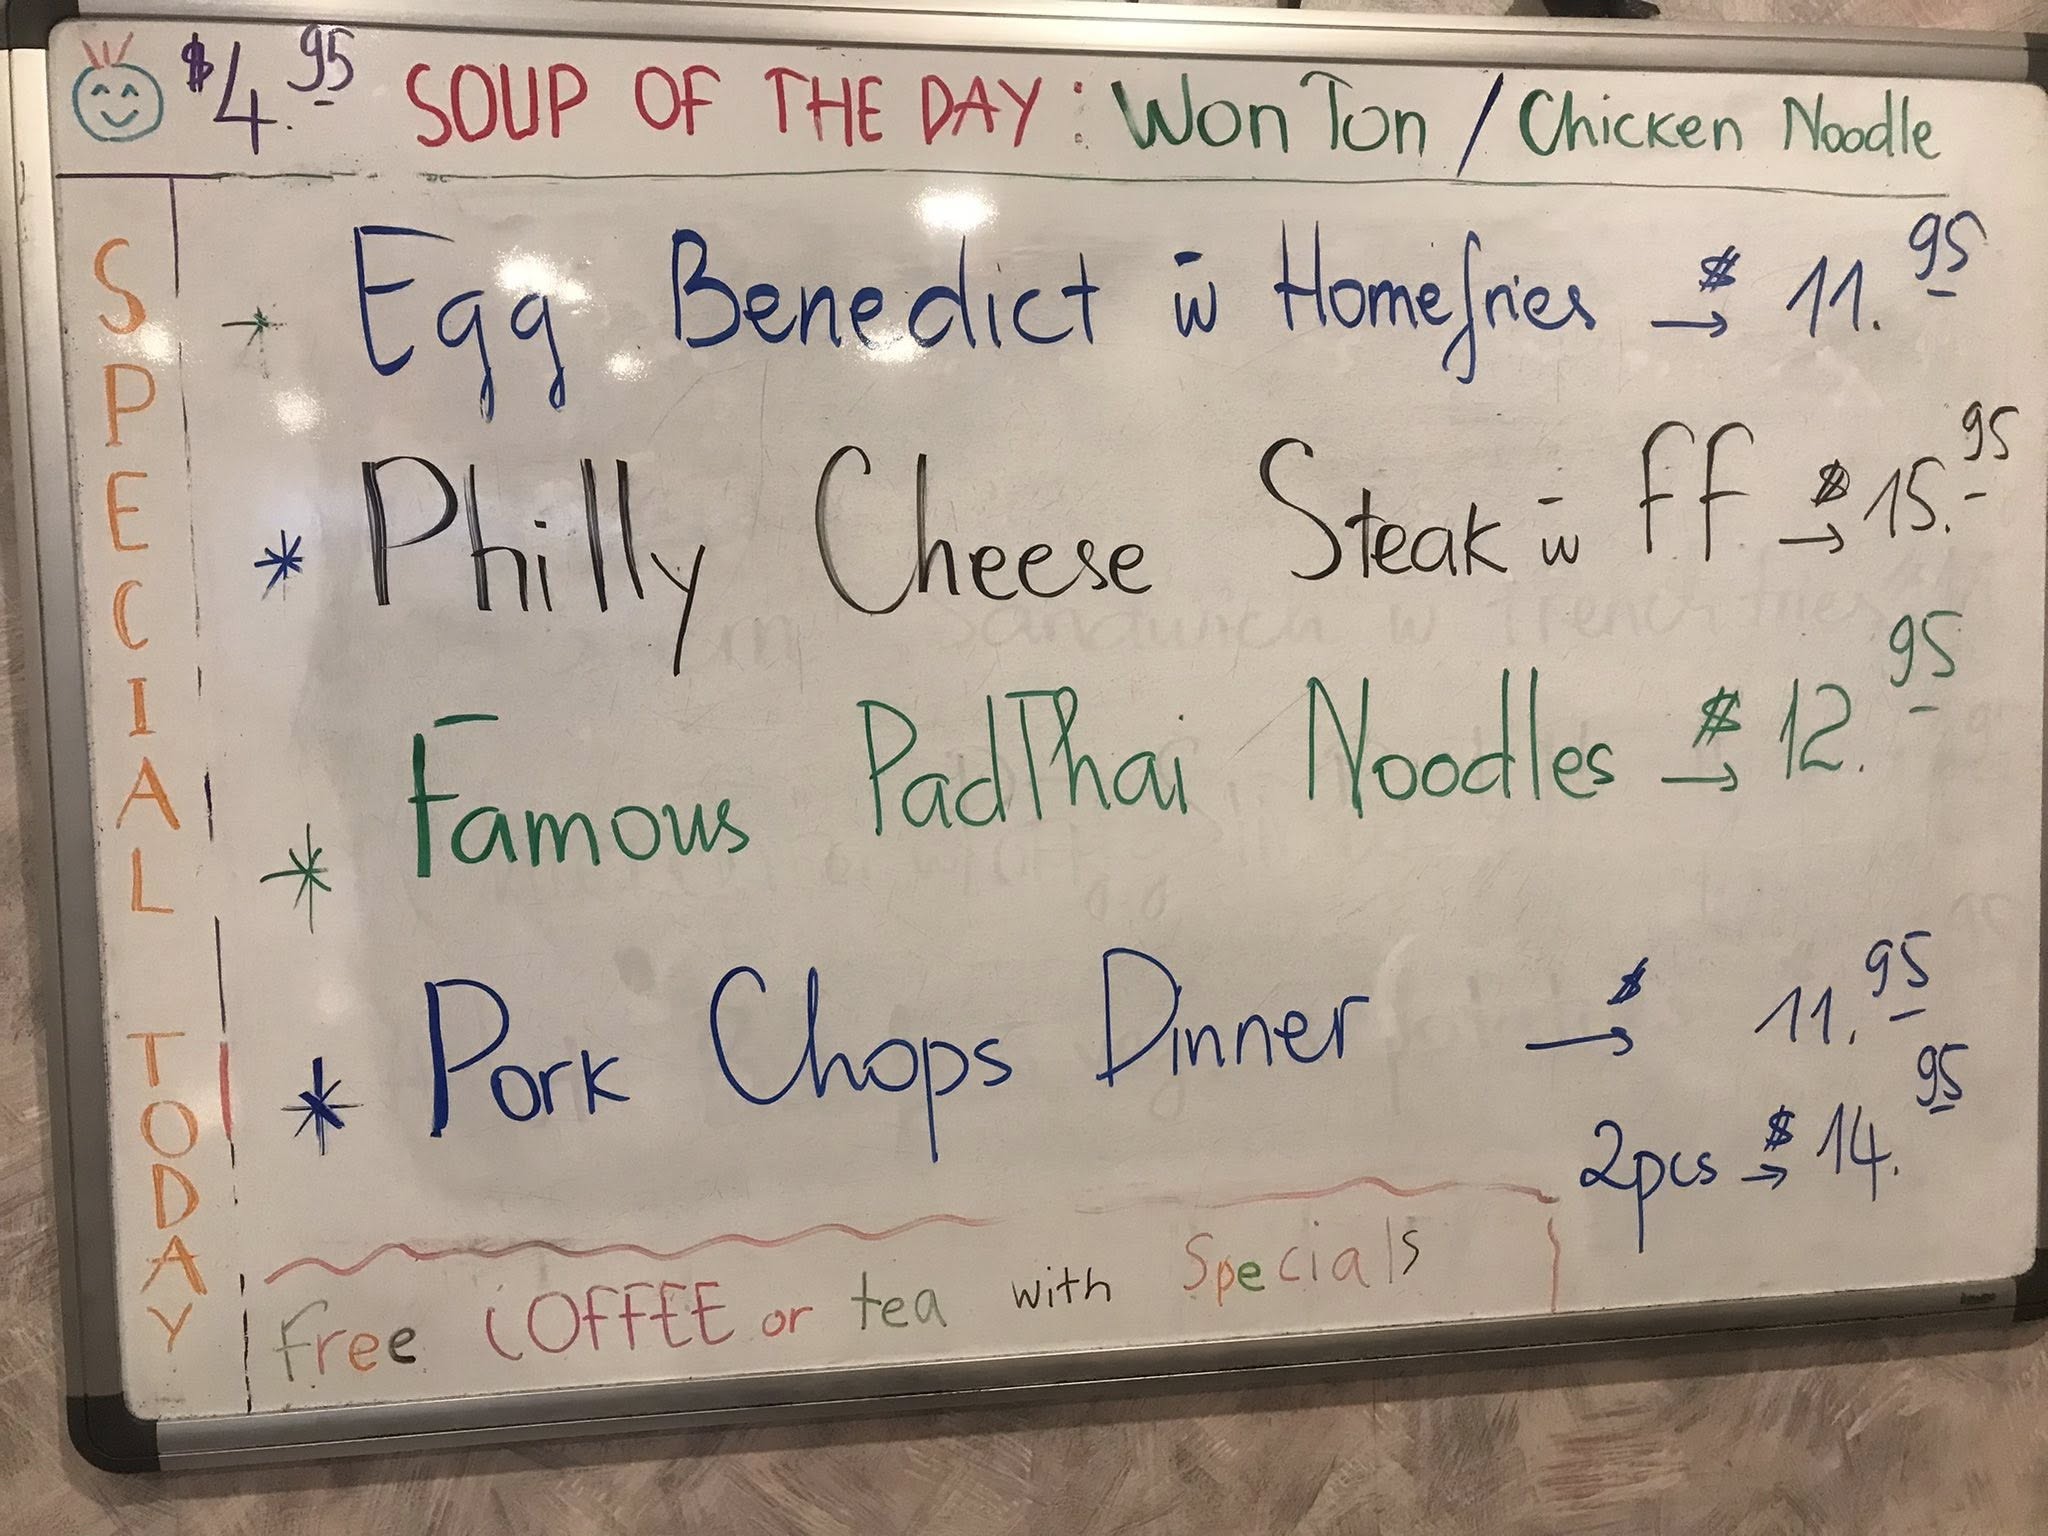 $4.95 SOUP OF THE DAY: Won Ton / Chicken Noodle
SPECIAL TODAY
* Egg Benedict w̄ Homefries → $ 11.95
* Philly Cheese Steak w̄ FF → $ 15.95
* Famous PadThai Noodles → $ 12.95
* Pork Chops Dinner → $ 11.95
2pcs → $ 14.95
Free COFFEE or tea with Specials